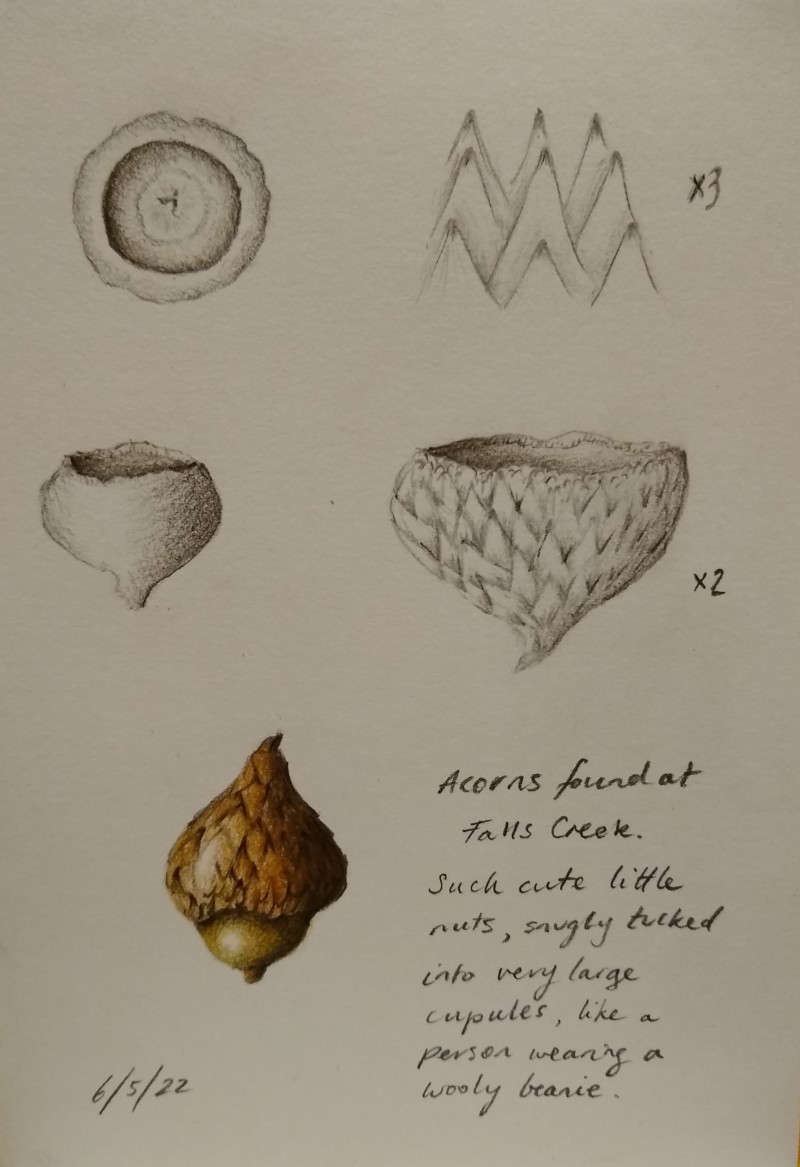 x3
x2
Acorns found at
Falls Creek.
Such cute little
nuts, snugly tucked
into very large
cupules, like a
person wearing a
wooly beanie.
6/5/22